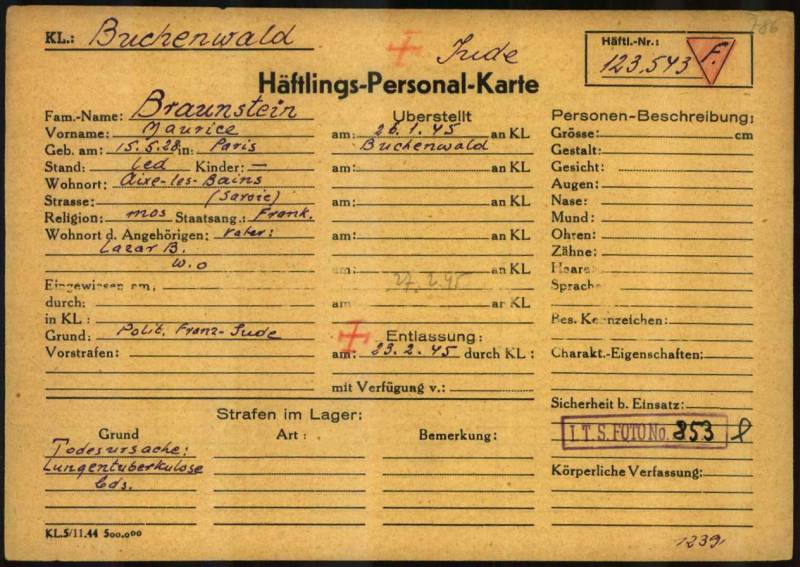 786
KL.: Buchenwald
Jude
Häftl.-Nr.:
123.543 F.
Häftlings-Personal-Karte
Fam.-Name: Braunstein
Vorname: Maurice
Geb. am: 15.5.28 in: Paris
Stand: led Kinder: —
Wohnort: Aixe-les-Bains
Strasse: (Savoie)
Religion: mos Staatsang.: Frank.
Wohnort d. Angehörigen: Vater:
Lazar B.
w.o
Eingewiesen am:
durch:
in KL:
Grund: Polit. Franz-Jude
Vorstrafen:
Überstellt
am: 26.1.45 an KL
Buchenwald
am: an KL
am: an KL
am: an KL
am: an KL
am: an KL
27.2.45
am an KL
Entlassung:
am: 23.2.45 durch KL:
mit Verfügung v.:
Personen-Beschreibung:
Grösse: cm
Gestalt:
Gesicht:
Augen:
Nase:
Mund:
Ohren:
Zähne:
Haare:
Sprache
Bes. Kennzeichen:
Charakt.-Eigenschaften:
Sicherheit b. Einsatz:
I.T.S. FOTO No. 853
Körperliche Verfassung:
Strafen im Lager:
Grund Art: Bemerkung:
Todesursache:
Lungentuberkulose
bds.
KL.5/11.44 500.000
1239